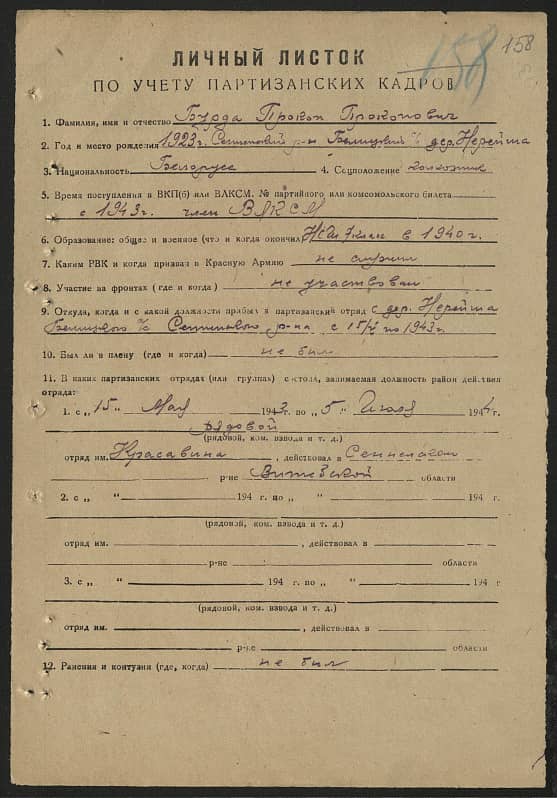 158
158
ЛИЧНЫЙ ЛИСТОК
ПО УЧЕТУ ПАРТИЗАНСКИХ КАДРОВ
1. Фамилия, имя и отчество Бурда Прокоп Прокопович
2. Год и место рождения 1923г. Сенненский р-н Белицкий с/с дер. Нерейша
3. Национальность Белорусс 4. Соцположение колхозник
5. Время поступления в ВКП(б) или ВЛКСМ. № партийного или комсомольского билета
с 1943г. член ВЛКСМ
6. Образование: общее и военное (что и когда окончил) 7 клас в 1940г.
7. Каким РВК и когда призван в Красную Армию не служил
8. Участие на фронтах (где и когда) не участвовал
9. Откуда, когда и с какой должности прибыл в партизанский отряд с дер. Нерейша
Белицкого с/с Сенненского р-на с 15/V 1943г.
10. Был ли в плену (где и когда) не был
11. В каких партизанских отрядах (или группах) состоял, занимаемая должность район действия
отряда:
1. с „15" Мая 1943 г. по „5" Июля 1944 г.
рядовой
(рядовой, ком. взвода и т. д.)
отряд им. Красавина, действовал в Сенненском
р-не Витебской области
2. с „ " 194 г. по „ " 194 г.
(рядовой, ком. взвода и т. д.)
отряд им. , действовал в
р-не области
3. с „ " 194 г. по „ " 194 г
(рядовой, ком. взвода и т. д.)
отряд им. , действовал в
р-не области
12. Ранения и контузии (где, когда) не был